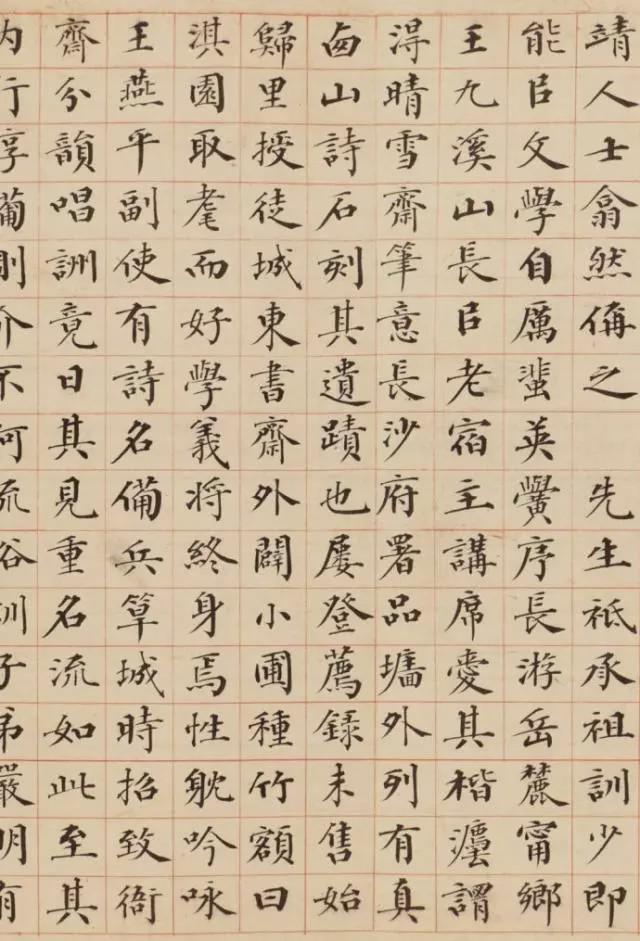 靖人士翕然稱之 先生祗承祖訓少即
能㠯文學自厲蜚英黌序長游岳麓甯鄉
王九溪山長㠯老宿主講席愛其楷灋謂
淂晴雪齋筆意長沙府署品墻外列有真
卥山詩石刻其遺蹟也屡登薦錄未售始
歸里授徒城東書齋外闢小圃種竹額曰
淇園取耄而好學義将終身焉性躭吟咏
王燕平副使有詩名備兵筸城時招致衙
齋分韻唱詶竟日其見重名流如此至其
内行介不流俗訓子弟嚴明有